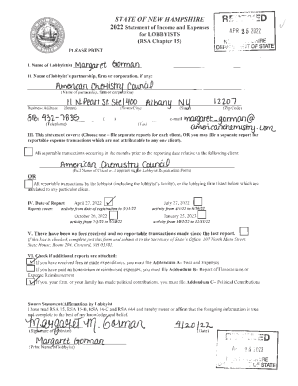 STATE OF NEW HAMPSHIRE
2022 Statement of Income and Expenses
for LOBBYISTS
(RSA Chapter 15)
PLEASE PRINT
APR 25 2022
NEW HAMPSHIRE
DEPARTMENT OF STATE
I. Name of Lobbyist(s) Margaret Gorman
II. Name of lobbyist's partnership, firm or corporation, if any:
American Chemistry Council
(Name of partnership, firm or corporation)
11 N. Pearl St Ste 1400 Albany NY 12207
(Town/City) (State) (Zip Code)
518 432-7835 e-mail margaret_gorman@
americanchemistry.com
(Telephone) (Fax)
III. This statement covers: (Choose one – file separate reports for each client, OR you may file a separate report for
reportable transactions which are not attributable to any one client).
All reportable transactions occurring in the months prior to the reporting date relative to the following client:
American Chemistry Council
OR
All reportable transactions by the lobbyist (including the lobbyist's family), or the lobbying firm listed below which are
unrelated to any particular client.
IV. Date of Report April 27, 2022
July 27, 2022
October 26, 2022
January 25, 2023
V. There have been no fees received and no reportable transactions made since the last report.
If this box is checked, complete just this form and submit to the Secretary of State's Office, 107 North Main Street,
State House, Concord, NH 03301
VI. Check if additional reports are attached:
If you have received fees or made expenditures, you must file Addendum A- Fees and Expenses
If you have paid an honorarium or reimbursed expenses, you must file Addendum B- Report of Honorariums or
Expense Reimbursement
If you, your firm, or your family has made political contributions, you must file Addendum C- Political Contributions
Sworn Statement/Affirmation by Lobbyist
I have read RSA 15, RSA 15-B, RSA 14-C and RSA 664 and hereby swear or affirm that the foregoing information is true
and complete to the best of my knowledge and belief.
Margaret M. Gorman 4/20/22
(Signature of lobbyist) (Date)
Margaret Gorman
(Print Name of lobbyist)